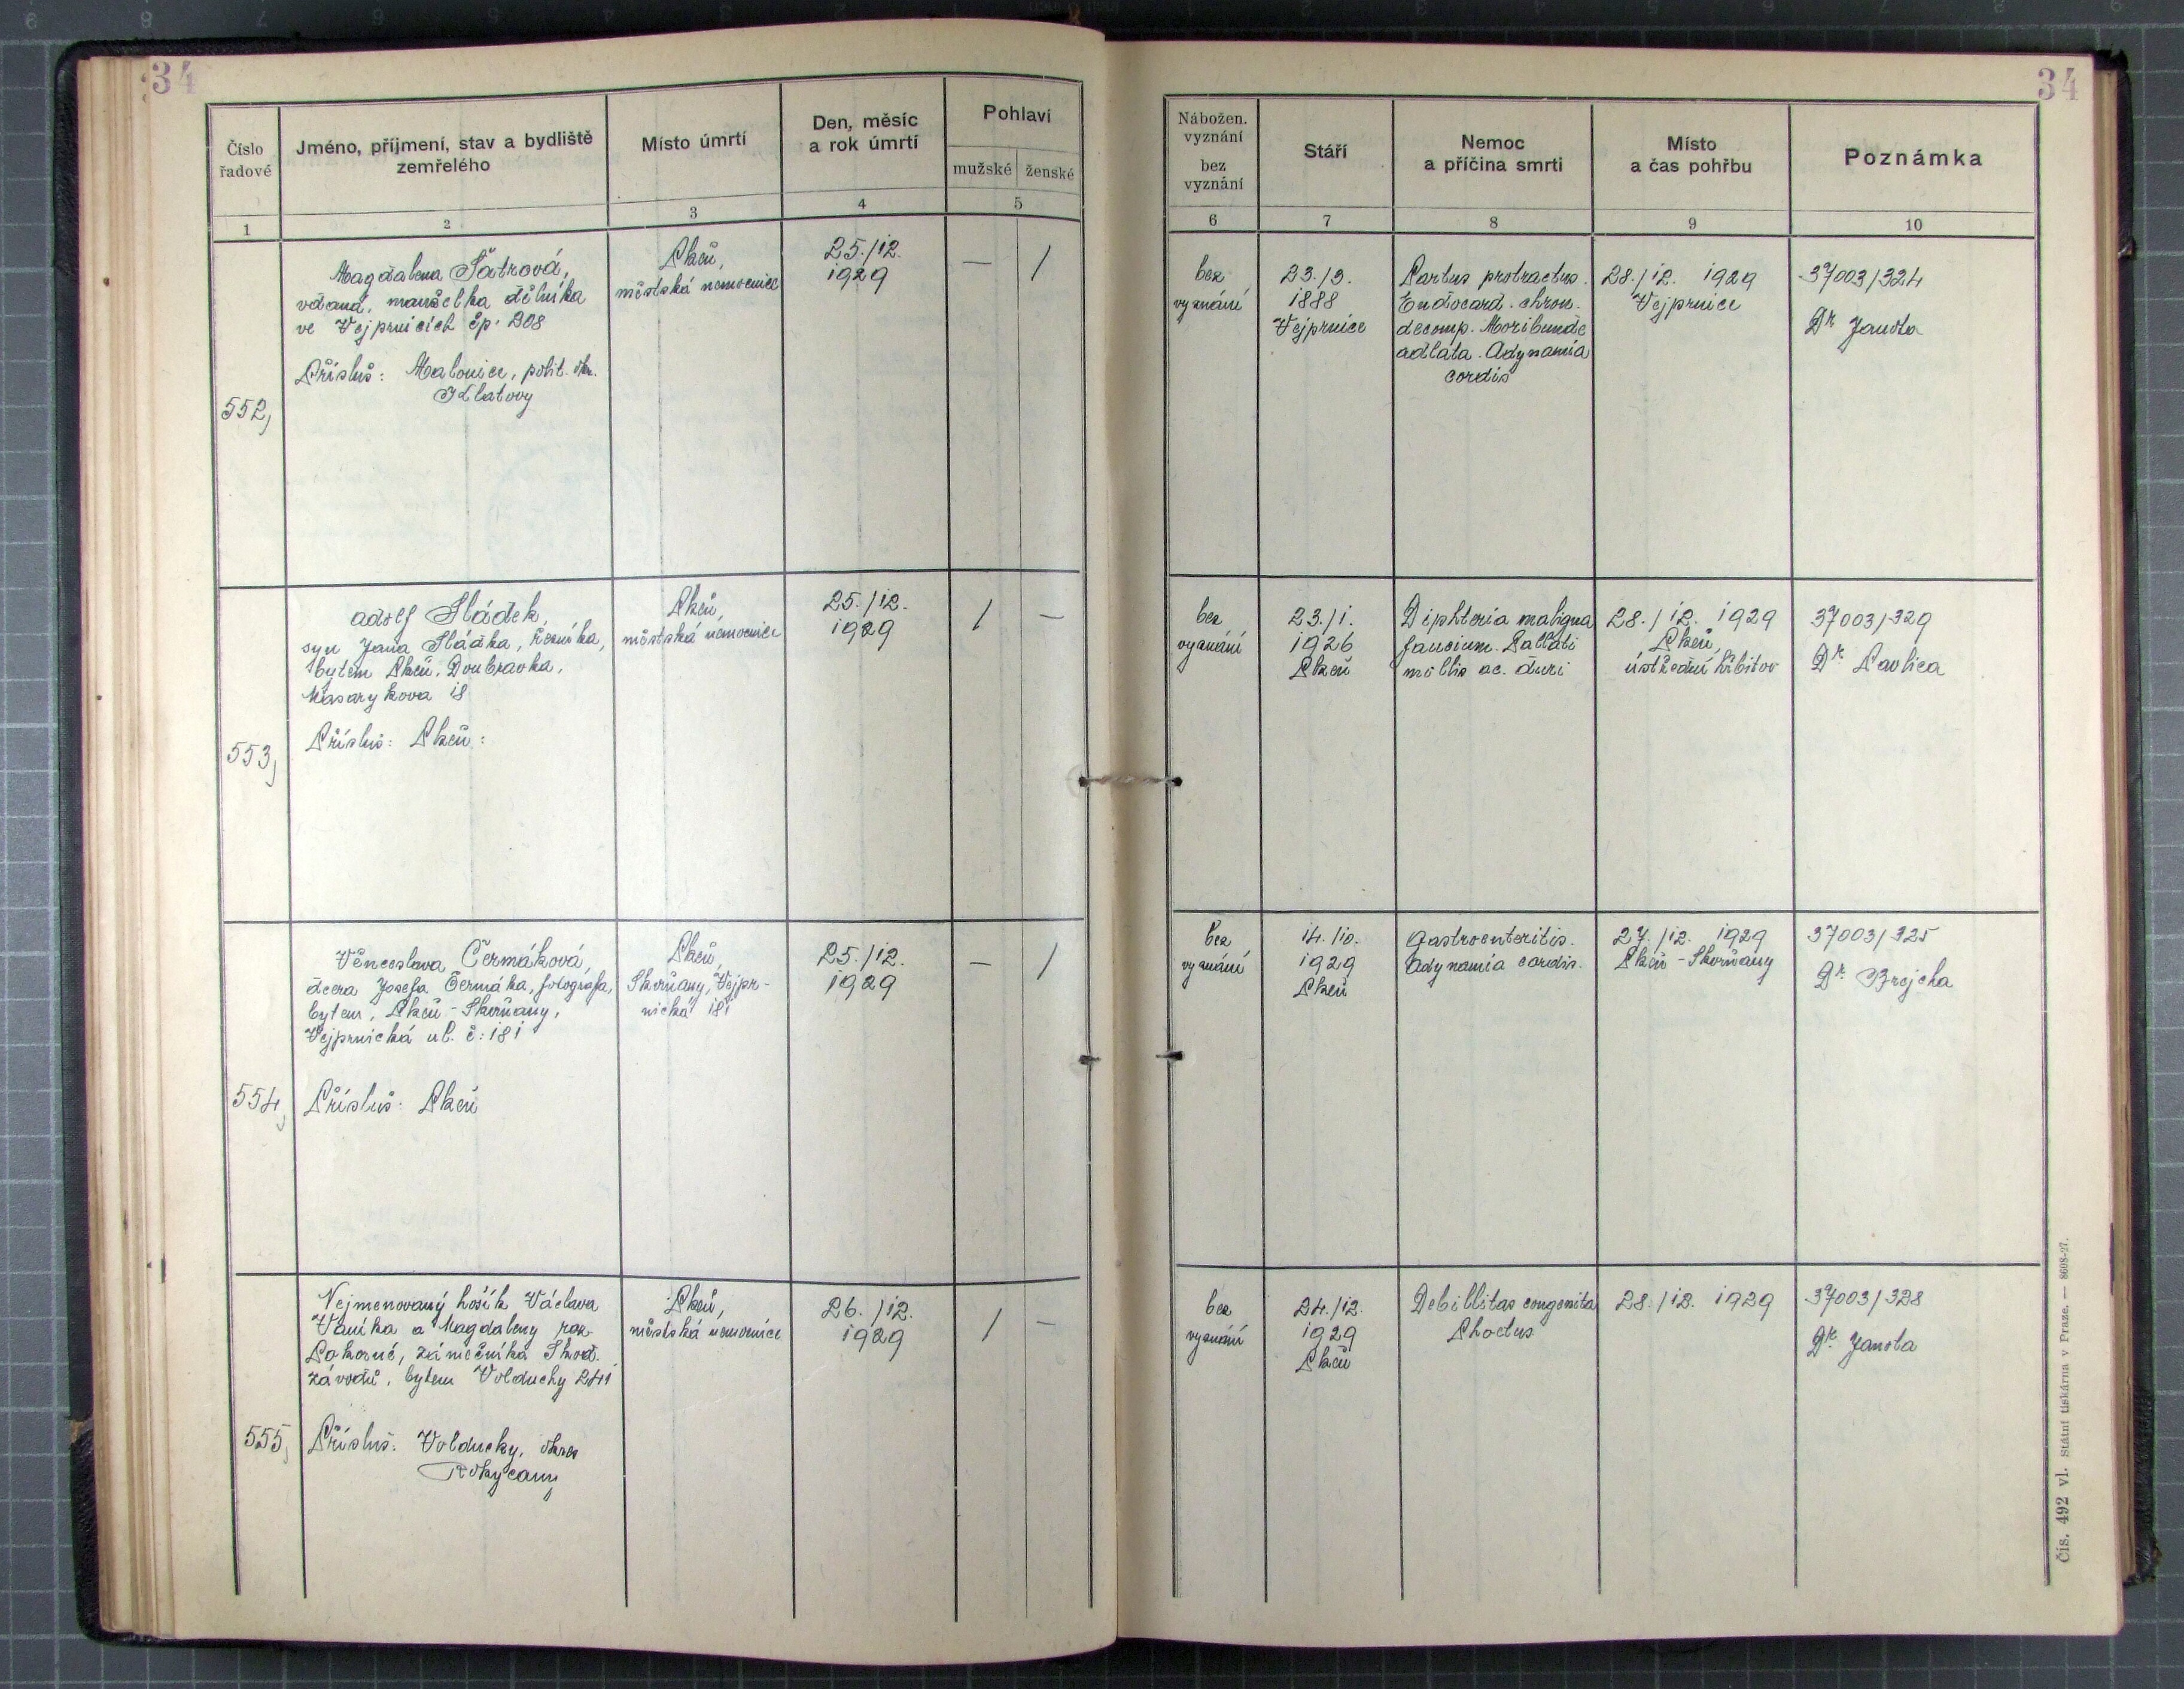 34
Číslo
řadové
Jméno, příjmení, stav a bydliště
zemřelého
Místo úmrtí
Den, měsíc
a rok úmrtí
Pohlaví
mužské ženské
1 2 3 4 5
552,
Magdalena Šatrová,
vdaná, manželka dělníka
ve Vejprnicích čp. 308
Přísluš: Malonice, polit. okr.
Klatovy
Plzeň,
městská nemocnice
25./12.
1929
— /
553,
Adolf Sládek,
syn Jana Sládka, řezníka,
bytem Plzeň, Doubravka,
Masarykova 18
Přísluš: Plzeň:
Plzeň,
městská nemocnice
25./12.
1929
/ —
554,
Věnceslava Čermáková,
dcera Josefa Čermáka, fotografa,
bytem, Plzeň - Skvrňany,
Vejprnická ul. č: 181
Přísluš: Plzeň
Plzeň,
Skvrňany, Vejpr-
nická 181
25./12.
1929
— /
555,
Nejmenovaný hošík Václava
Vaníka a Magdaleny roz.
Pokorné, zámečníka Škod.
závodů, bytem Volduchy 241
Přísluš: Volduchy, okres
Rokycany
Plzeň,
městská nemocnice
26./12.
1929
/ —
34
Nábožen.
vyznání
bez
vyznání
Stáří
Nemoc
a příčina smrti
Místo
a čas pohřbu
Poznámka
6 7 8 9 10
bez
vyznání
23./3.
1888
Vejprnice
Partus protractus.
Endocard. chron.
decomp. Moribunde
adlata. Adynamia
cordis
28./12. 1929
Vejprnice
37003/324
Dr Janota
bez
vyznání
23./1.
1926
Plzeň
Diphteria maligna
faucium. Pallati
mollis ac. duri
28./12. 1929
Plzeň,
ústřední hřbitov
37003/329
Dr. Pavlica
bez
vyznání
14./10.
1929
Plzeň
Gastroenteritis.
Adynamia cordis.
27./12. 1929
Plzeň - Skvrňany
37003/325
Dr. Brejcha
bez
vyznání
24./12.
1929
Plzeň
Debillitas congenita
Phoetus
28./12. 1929
37003/328
Dr. Janota
Čís. 492 vl. Státní tiskárna v Praze. — 8608-27.